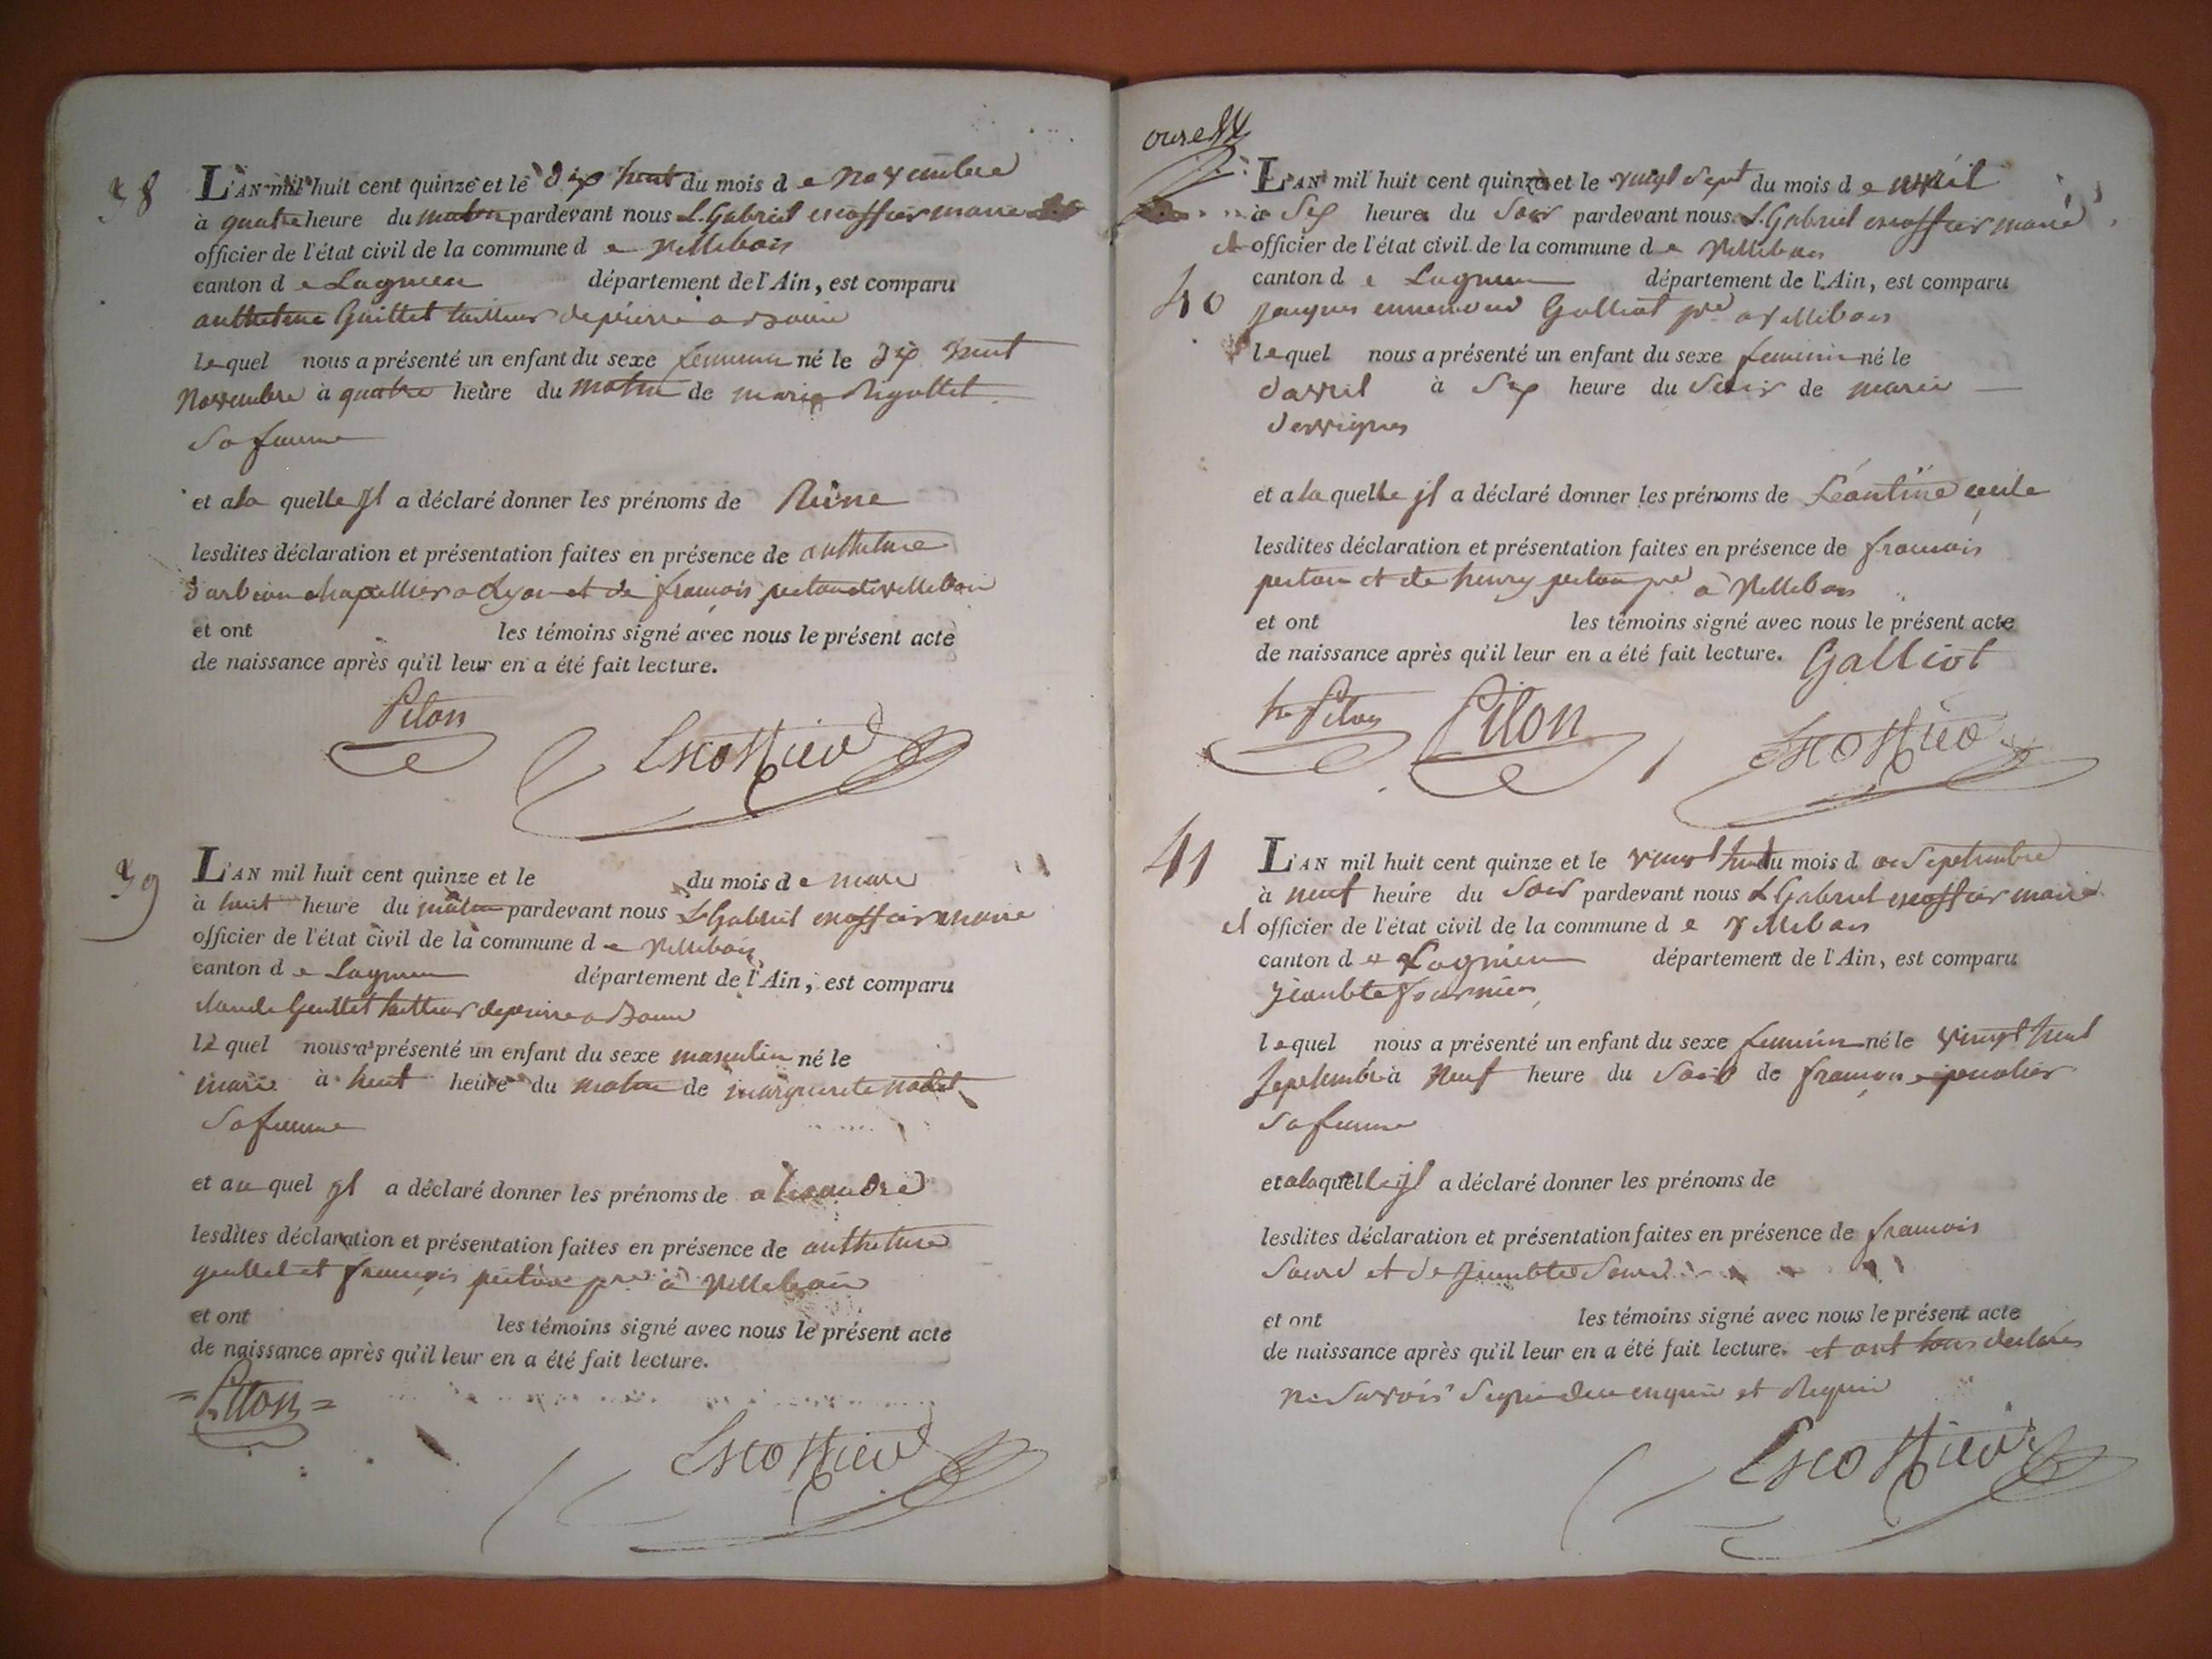 38
L'AN mil huit cent quinze et le dix huit du mois d e novembre
à quatre heure du matin pardevant nous L. Gabriel escoffier maire
officier de l'état civil de la commune d e villebois
canton d e Lagnieu département de l'Ain, est comparu
anthelme Guillet tailleur de pierre a
lequel nous a présenté un enfant du sexe feminin né le dix huit
novembre à quatre heure du matin de marie Rigottet
sa femme
et ala quelle jl a déclaré donner les prénoms de Reine
lesdites déclaration et présentation faites en présence de anthelme
chapellier a Lyon et de françois de villebois
et ont les témoins signé avec nous le présent acte
de naissance après qu'il leur en a été fait lecture.
Piton
Escoffier
39
L'AN mil huit cent quinze et le du mois d e mars
à huit heure du matin pardevant nous L Gabriel escoffier maire
officier de l'état civil de la commune d e villebois
canton d e Lagnieu département de l'Ain, est comparu
claude Guillet tailleur de pierre a
le quel nous a présenté un enfant du sexe masculin né le
mars à huit heure du matin de marguerite
sa femme
et au quel jl a déclaré donner les prénoms de alexandre
lesdites déclaration et présentation faites en présence de anthelme
guillet et françois piton pre à villebois
et ont les témoins signé avec nous le présent acte
de naissance après qu'il leur en a été fait lecture.
Piton
Escoffier
L'AN mil huit cent quinze et le vingt sept du mois d e avril
à six heures du soir pardevant nous L. Gabriel escoffier maire
et officier de l'état civil de la commune d e villebois
canton d e Lagnieu département de l'Ain, est comparu
40
jacques ennemond Galliot pre a villebois
lequel nous a présenté un enfant du sexe feminin né le
davril à six heure du soir de marie
et a la quelle jl a déclaré donner les prénoms de Léontine cecile
lesdites déclaration et présentation faites en présence de francois
piton et de henry piton pre à villebois
et ont les témoins signé avec nous le présent acte
de naissance après qu'il leur en a été fait lecture. Galliot
hy Piton Piton Escoffier
41
L'AN mil huit cent quinze et le vingt huit du mois d e Septembre
à neuf heure du soir pardevant nous L Gabriel escoffier maire
et officier de l'état civil de la commune d e villebois
canton d e Lagnieu département de l'Ain, est comparu
fournier
lequel nous a présenté un enfant du sexe feminin né le vingt huit
septembre à neuf heure du soir de françoise
sa femme
et a laquelle jl a déclaré donner les prénoms de
lesdites déclaration et présentation faites en présence de francois
et de
et ont les témoins signé avec nous le présent acte
de naissance après qu'il leur en a été fait lecture. et ont tous declarés
ne savoir signé de ce enquis et Requis
Escoffier